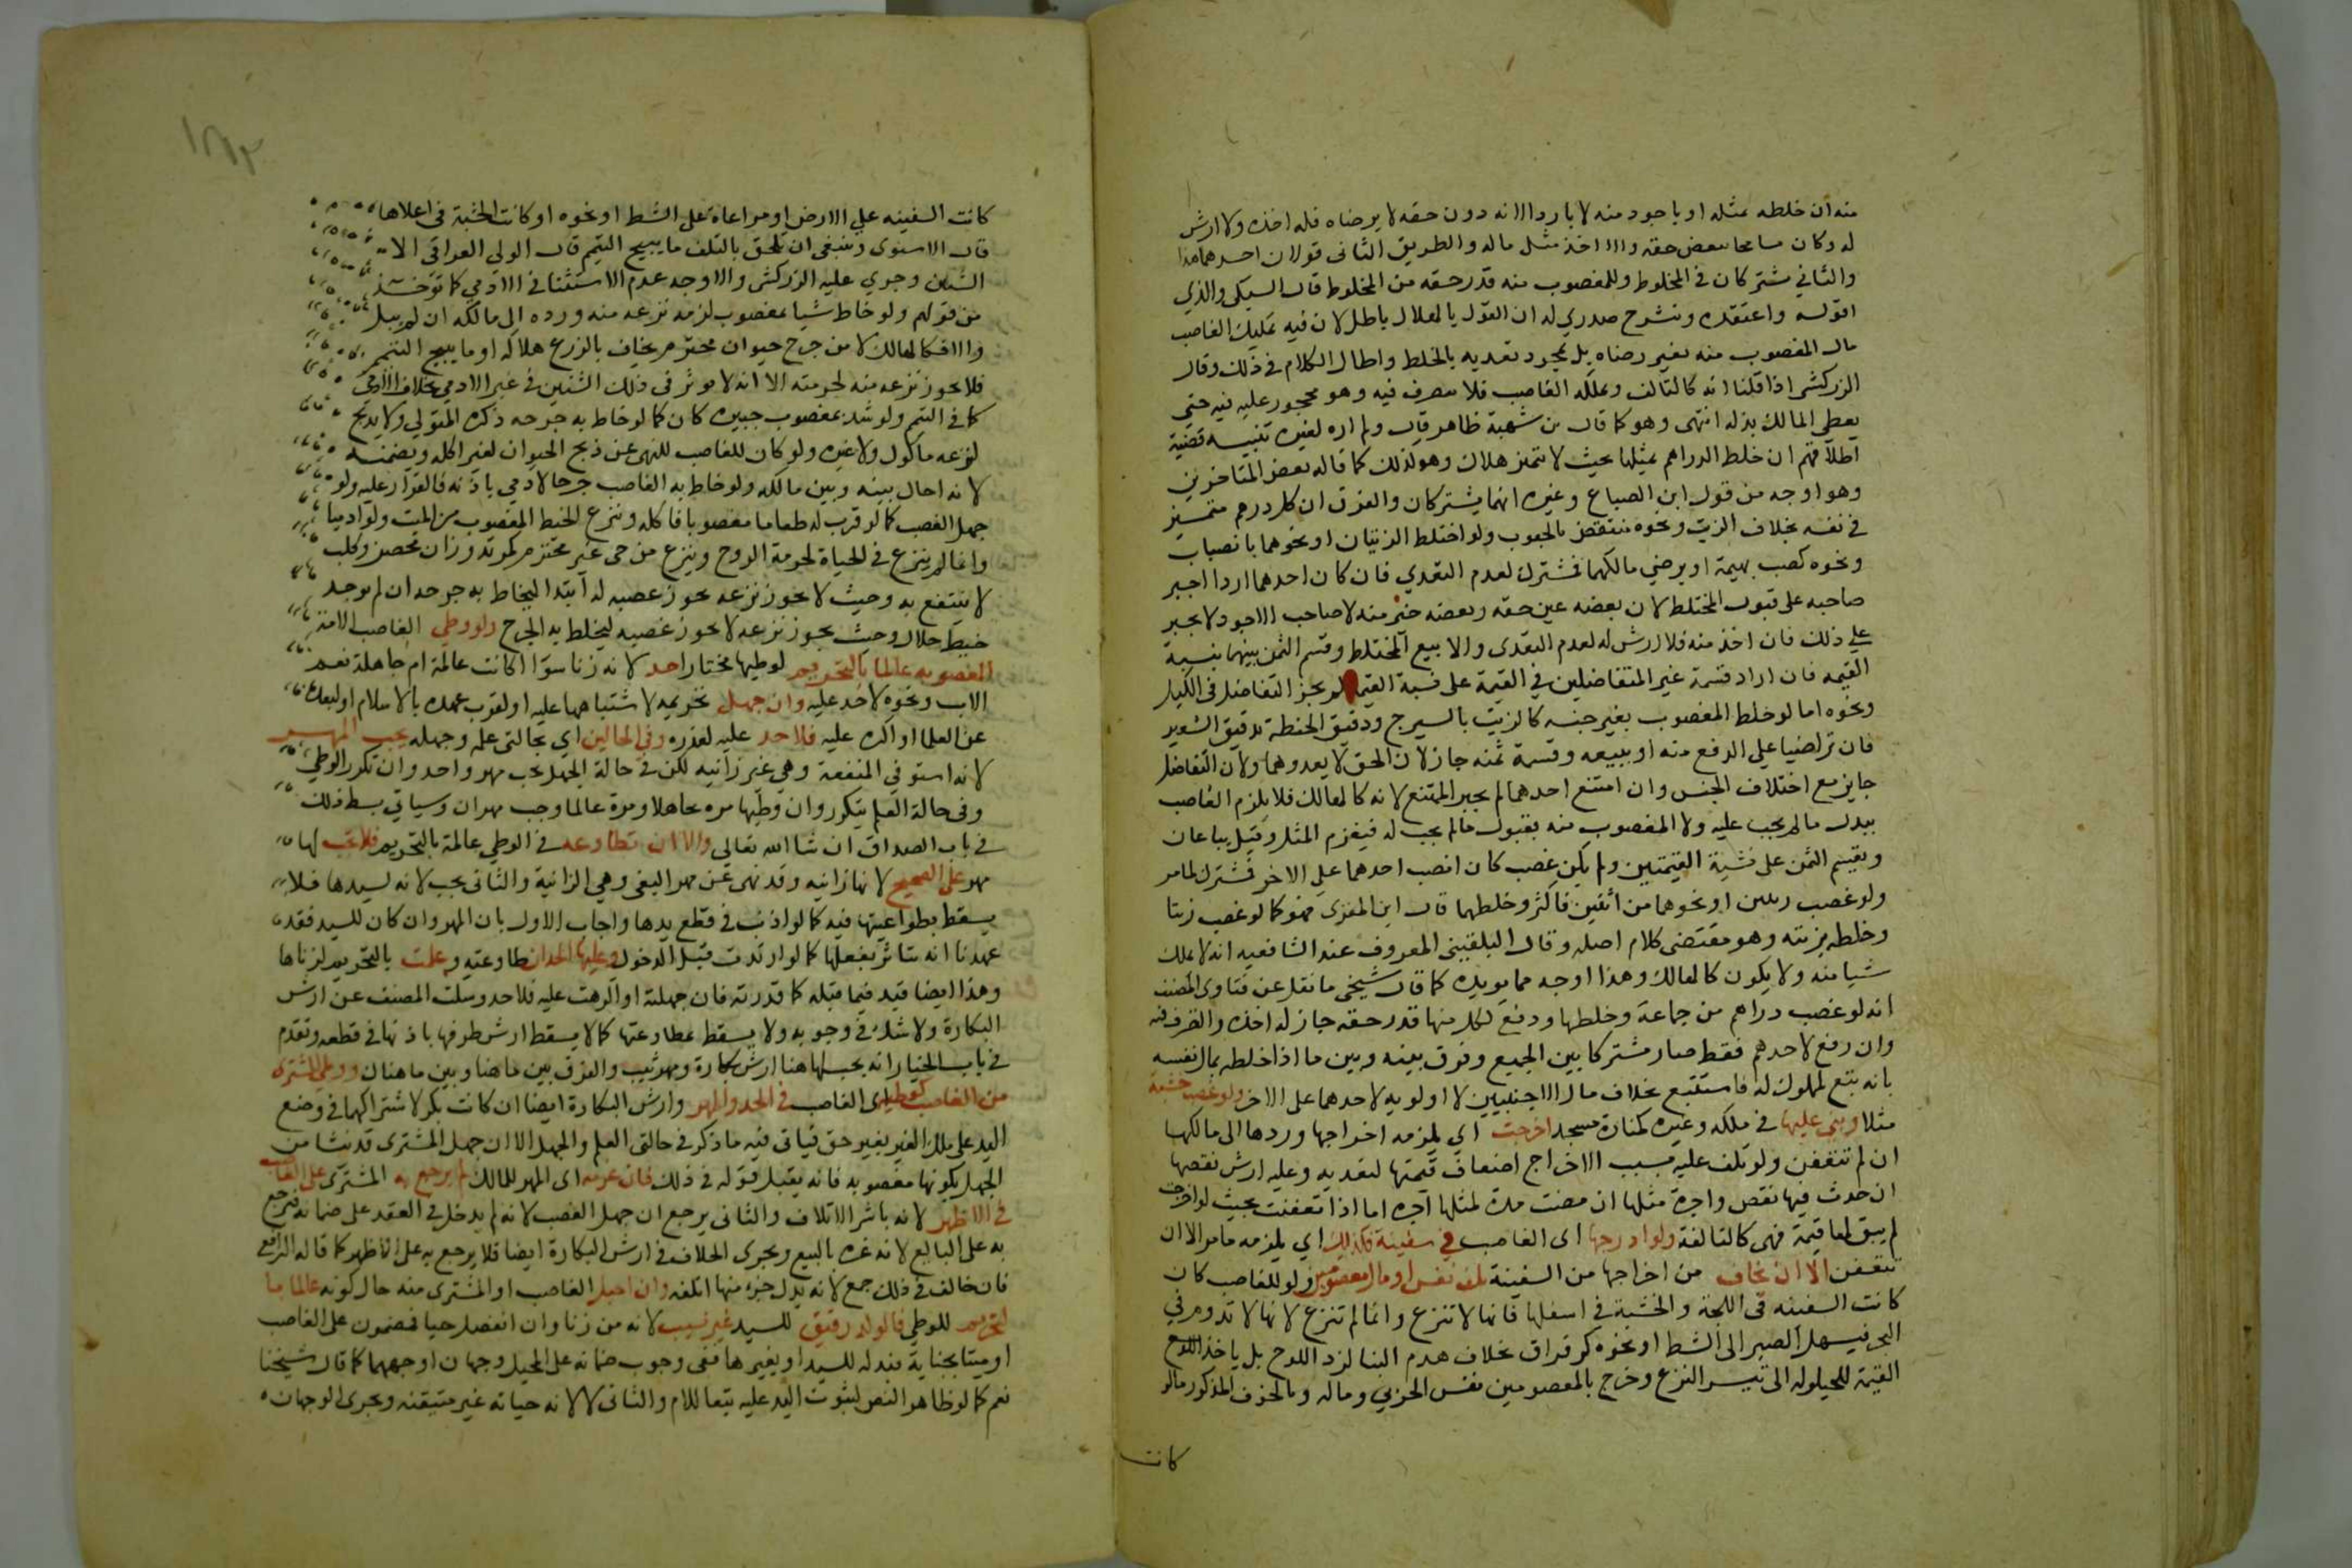 منه ان خلطه بمثله او باجود منه لا باردا لانه دون حقه لا برضاه فله اخذه ولا ارش
له وكان مسامحا ببعض حقه والا اخذ مثل ماله والطريق الثاني قولان احدهما هذا
والثاني يشتركان في المخلوط وللمغصوب منه قدر حقه من المخلوط قال السبكي والذي
اقوله واعتقده وينشرح صدري له ان القول بالهلاك باطل لان فيه تمليك الغاصب
مال المغصوب منه بغير رضاه بل بمجرد تعديه بالخلط واطال الكلام في ذلك وقال
الزركشي اذا قلنا انه كالتالف ويملكه الغاصب فلا يتصرف فيه وهو محجور عليه فيه حتى
يعطي المالك بذله انتهى وهو كما قال من شبهة ظاهر قال ولم اره لغيره تنبيه قضية
اطلاقهم ان خلط الدراهم بمثلها بحيث لا تتميز هلاك وهو لذلك كما قاله بعض المتاخرين
وهو اوجه من قول ابن الصباغ وغيره انهما يشتركان والفرق ان كل درهم متميز
في نفسه بخلاف الزيت ونحوه منتقض بالحبوب ولو اختلط الزيتان او نحوهما بانصباب
ونحوه كصب بهيمة او برضي مالكهما فمشترك لعدم التعدي فان كان احدهما اردا اجبر
صاحبه على قبول المختلط لان بعضه عين حقه وبعضه خير منه لا صاحب الاجود لا يجبر
على ذلك فان اخذ منه فلا ارش له لعدم التعدى والا بيع المختلط وقسم الثمن بينهما بنسبة
القيمه فان اراد قسمة غير المتفاضلين في القيمة على نسبة القيمة لم يجز التفاضل في الكيل
ونحوه اما لو خلط المغصوب بغير جنسه كالزيت بالسيرج ودقيق الحنطة بدقيق الشعير
فان تراضيا على الدفع منه او ببيعه وقسمة ثمنه جاز لان الحق لا يعدوهما ولان التفاضل
جايز مع اختلاف الجنس وان امتنع احدهما لم يجبر الممتنع لانه كالهالك فلا يلزم الغاصب
ببدل مالم يجب عليه ولا المغصوب منه بقبول مالم يجب له فيغرم المثل وقيل يباعان
ويقسم الثمن على نسبة القيمتين ولم يكن غصب كان انصب احدهما على الاخر فمشترك لما مر
ولو غصب رطلين او نحوهما من اثنين فاكثر وخلطهما قال ابن المقري فهو كما لو غصب زيتا
وخلطه بزيته وهو مقتضى كلام اصله وقال البلقيني المعروف عند الشافعيه انه لا يملك
شيا منه ولا يكون كالهالك وهذا اوجه مما يويده كما قال شيخي ما نقل عن فتاوى المصنف
انه لو غصب دراهم من جماعة وخلطها ودفع لكل منها قدر حقه جاز له اخذه والتصرف فيه
وان دفع لاحدهم فقط صار مشتركا بين الجميع وفرق بينه وبين ما اذا خلطه بمال نفسه
بانه يتبع لمملوك له فاستتبع بخلاف مال الاجنبيين لا اولويه لاحدهما على الاخر ولو غصب خشبة
مثلا وبنى عليها في ملكه وغيره كمنارة مسجد اخرجت اي يلزمه اخراجها وردها الى مالكها
ان لم تتعفن ولو تلف عليه بسبب الاخراج اضعاف قيمتها لتعديه وعليه ارش نقصها
ان حدث فيها نقص واجرة مثلها ان مضت مدة لمثلها اجره اما اذا تعفنت بحيث لو اخرجت
لم يبق لها قيمة فهي كالتالفة ولو ادرجها اى الغاصب في سفينة فكذلك اي يلزمه ما مر الا ان
تتعفن الا ان يخاف من اخراجها من السفينة تلف نفس او مال معصومين ولو للغاصب كان
كانت السفينه في اللجة والخشبة في اسفلها فانها لا تنزع وانما لم تنزع لانها لا تدوم في
البحر فيسهل الصبر الى الشط او نحوه كرقراق بخلاف هدم البنا لرد اللوح بل ياخذ اللوح
القيمة للحيلوله الى تيسر النزع وخرج بالمعصومين نفس الحربي وماله وبالخوف المذكور مالو
كانت
كانت السفينه على الارض او مراعاة على الشط او نحوه او كانت الخشبة في اعلاها
قال الاسنوى وينبغي ان يلحق بالتلف ما يبيح التيمم قال الولي العراقي الا
الشين وجري عليه الزركشي والاوجه عدم الاستثنا في الادمي كما توخذ
من قولهم ولو خاط شيا بمغصوب لزمه نزعه منه ورده الى مالكه ان لم يبل
والا فكالهالك لا من جرح حيوان محترم يخاف بالنزع هلاكه او ما يبيح التيمم
فلا يجوز نزعه منه لحرمته الا انه لا يوثر في ذلك الشين في غير الادمي بخلاف الادمي
كما في التيمم ولو شد بمغصوب جبيره كان كما لو خاط به جرحه ذكره المتولي ولا يذبح
لنزعه ماكول ولا غيره ولو كان للغاصب للنهي عن ذبح الحيوان لغير اكله ويضمنه
لانه احال بينه وبين مالكه ولو خاط به الغاصب جرحا لادمي باذنه فالقرار عليه ولو
جهل الغصب كما لو قرب له طعاما مغصوبا فاكله وينزع الخيط المغصوب من الميت ولو ادميا
وانما لم ينزع في الحياة لحرمة الروح وينزع من حي غير محترم كمرتد وزان محصن وكلب
لا ينتفع به وحيث لا يجوز نزعه يجوز غصبه له ابتدا ليخاط به جرحه ان لم يوجد
خيط حلال وحيث يجوز نزعه لا يجوز غصبه ليخلط به الجرح ولو وطي الغاصب الامة
المغصوبه عالما بالتحريم لوطيها مختارا حد لانه زنا سوا اكانت عالمة ام جاهلة نعم
الاب ونحوه لا حد عليه وان جهل تحريمه لاشتباهها عليه او لقرب عهده بالاسلام او لبعده
عن العلما او اكره عليه فلا حد عليه لعذره وفي الحالين اي بحالتي علمه وجهله يجب المهر
لانه استوفى المنفعة وهي غير زانيه لكن في حالة الجهل يجب مهر واحد وان تكرر الوطي
وفي حالة العلم يتكرر وان وطيها مره جاهلا ومرة عالما وجب مهران وسياتي بسط ذلك
في باب الصداق ان شا الله تعالى والا ان تطاوعه في الوطي عالمة بالتحريم فلا يجب لها
مهر على الصحيح لانها زانيه وقد نهى عن مهر البغي وهي الزانية والثاني يجب لانه لسيدها فلا
يسقط بطواعيتها فيه كما لو اذنت في قطع يدها واجاب الاول بان المهر وان كان للسيد فقد
عهدنا انه يتاثر بفعلها كما لو ارتدت قبل الدخول وعليها الحد ان طاوعته وعلمت بالتحريم لزناها
وهذا ايضا قيد فيما قبله كما قدرته فان جهلته او اكرهت عليه فلا حد وسكت المصنف عن ارش
البكارة ولا شك في وجوبه ولا يسقط بمطاوعتها كما لا يسقط ارش طرفها باذنها في قطعه وتقدم
في باب الخيار انه يجب لها هنا ارش بكارة ومهر ثيب والفرق بين ما هنا وبين ما هناك ووطي المشتري
من الغاصب كوطئه اى الغاصب في الحد والمهر وارش البكارة ايضا ان كانت بكر لاشتراكهما في وضع
اليد على ملك الغير بغير حق فياتي فيه ما ذكر في حالتي العلم والجهل الا ان جهل المشترى قد ينشا من
الجهل بكونها مغصوبه فانه يقبل قوله في ذلك فان غرمه اى المهر للمالك لم يرجع به المشترى على الغاصب
في الاظهر لانه باشر الاتلاف والثاني يرجع ان جهل الغصب لانه لم يدخل في العقد على ضمانه فيرجع
به على البايع لانه غره بالبيع ويجرى الخلاف في ارش البكارة ايضا فلا يرجع به على الاظهر كما قاله الرافعي
فان خالف في ذلك جمع لانه بدل جزء منها اتلفه وان احبل الغاصب او المشترى منه حال كونه عالما با
لتحريم للوطي فالولد رقيق للسيد غير نسيب لانه من زنا وان انفصل حيا فمضمون على الغاصب
او ميتا بجناية فبدله للسيد او بغيرها ففي وجوب ضمانه على المحبل وجهان اوجههما كما قال شيخنا
نعم كما لو ظاهر النص لثبوت اليد عليه تبعا للام والثاني لا لانه حياته غير متيقنه ويجرى الوجهان